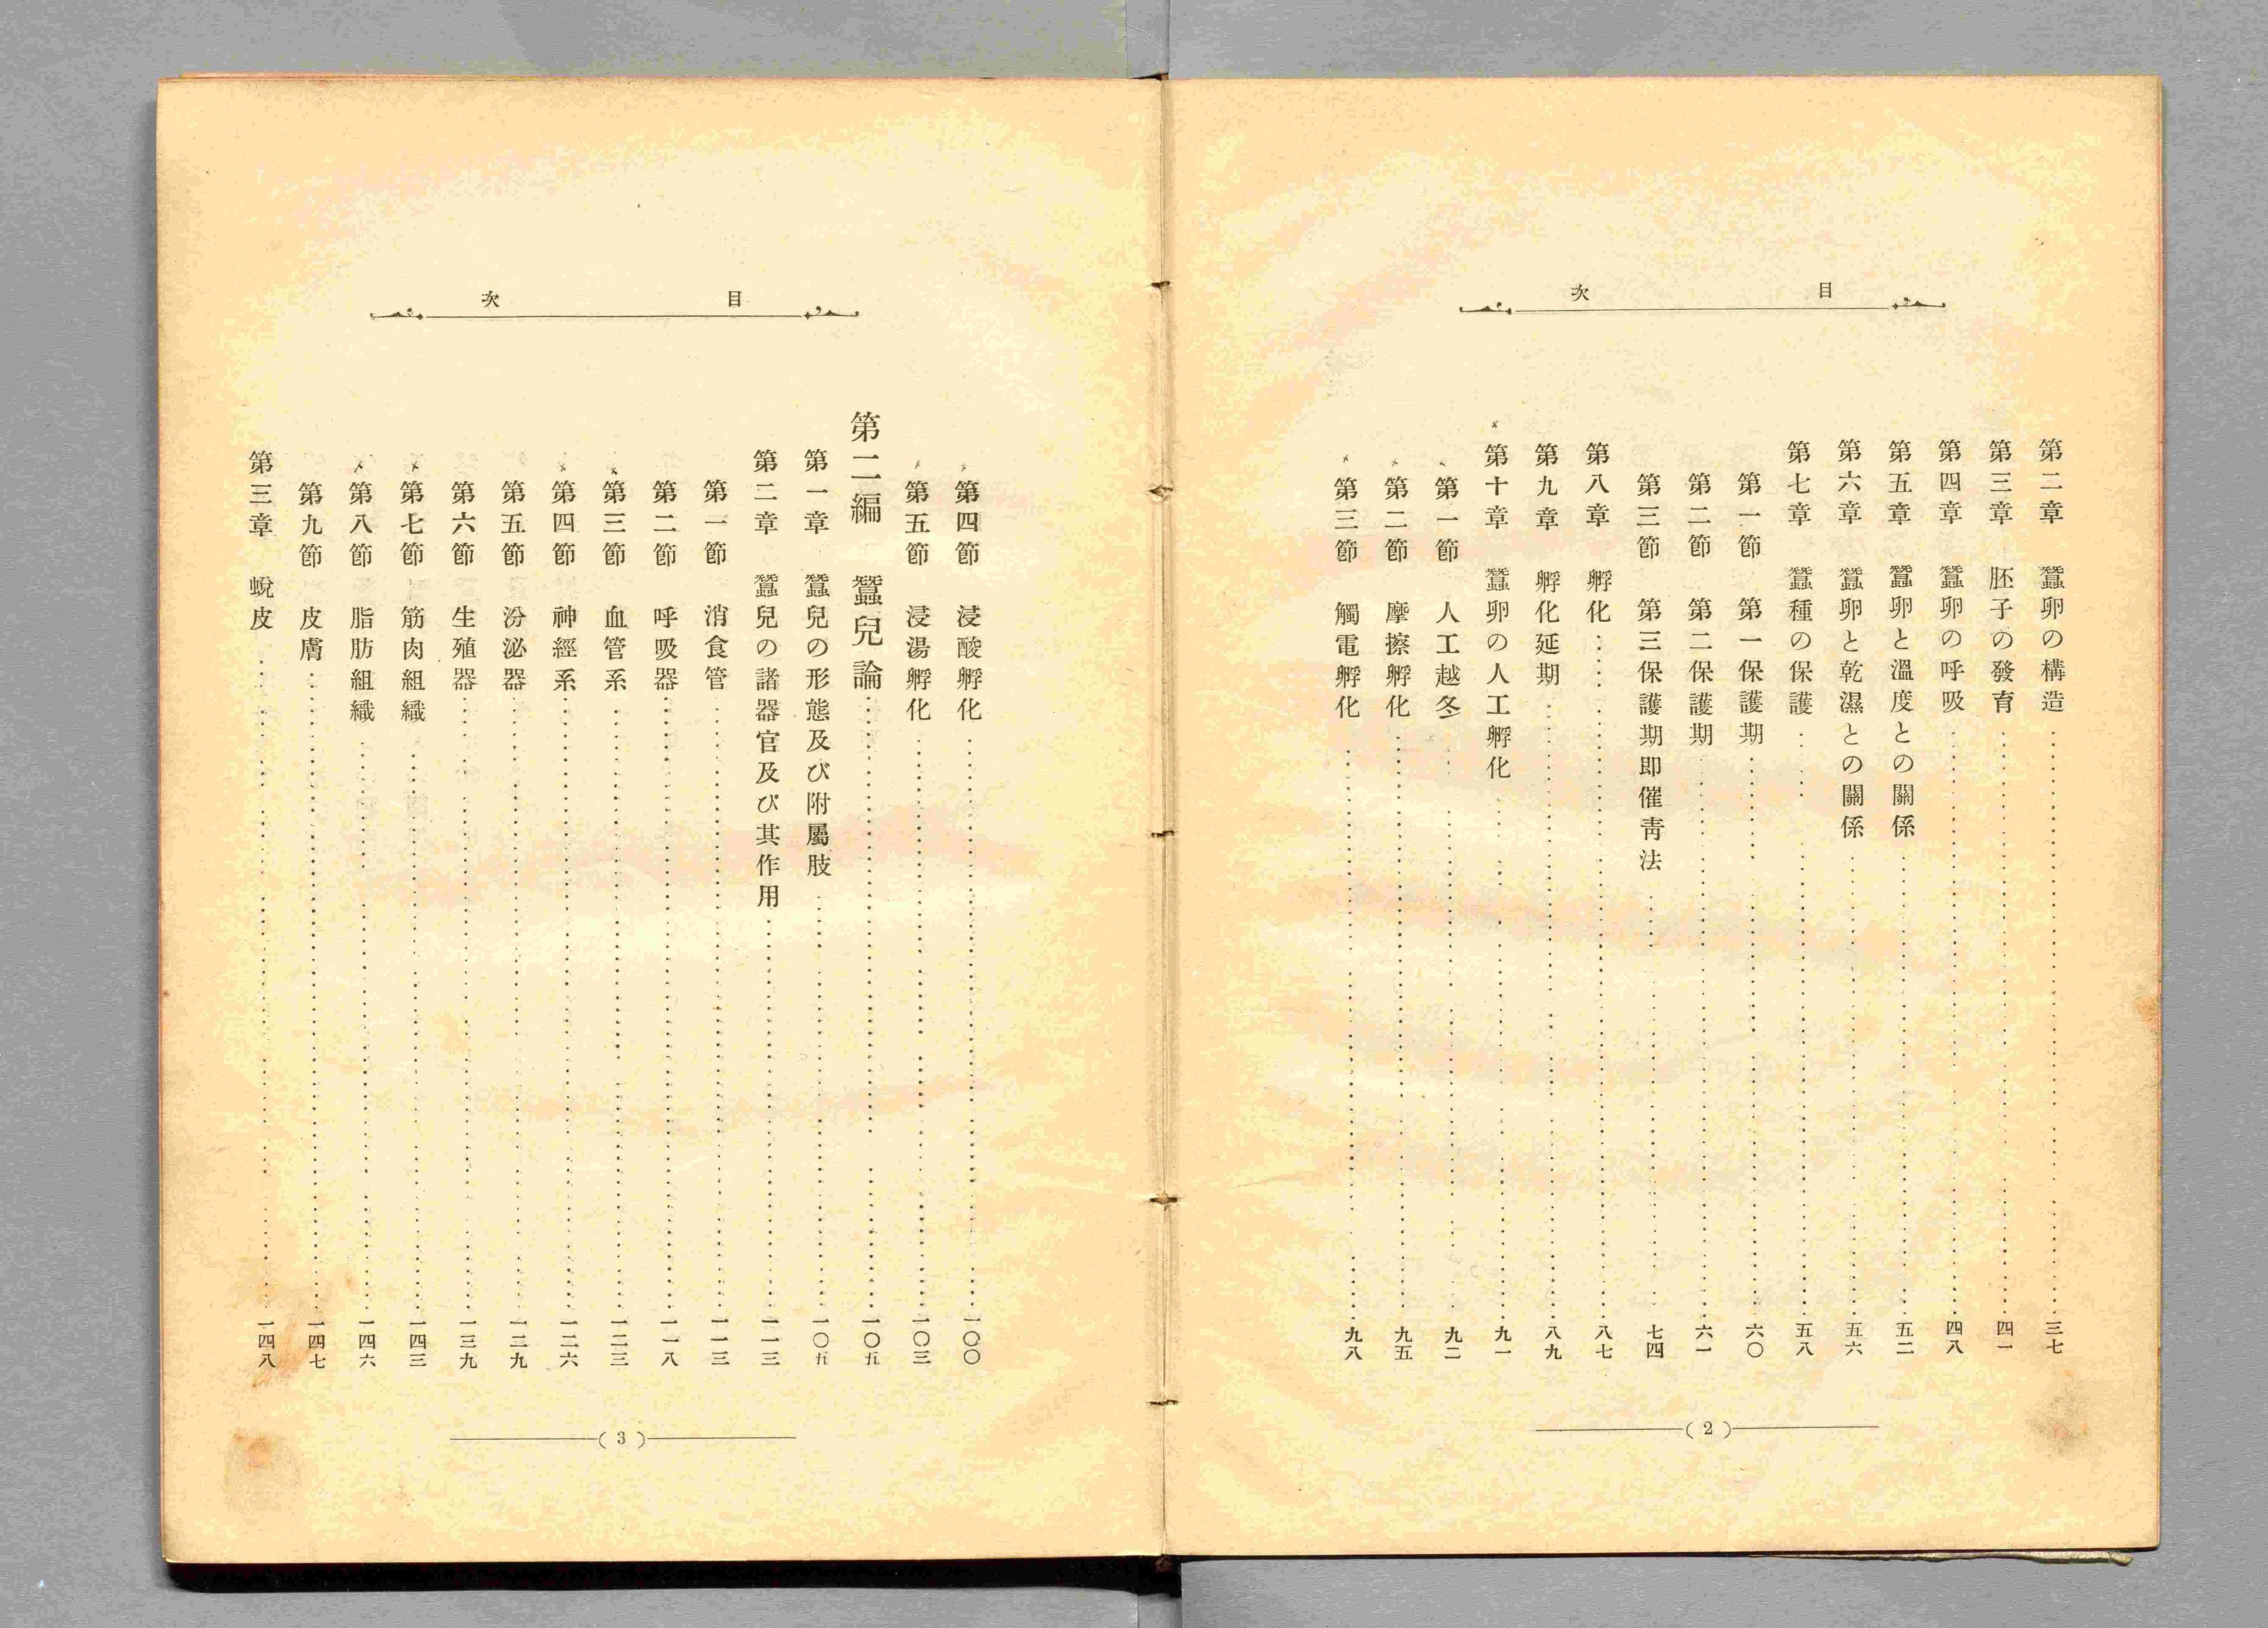 目次
第二章 蠶卵の構造 三七
第三章 胚子の發育 四一
第四章 蠶卵の呼吸 四八
第五章 蠶卵と溫度との關係 五二
第六章 蠶卵と乾濕との關係 五六
第七章 蠶種の保護 五八
第一節 第一保護期 六〇
第二節 第二保護期 六一
第三節 第三保護期卽催靑法 七四
第八章 孵化 八七
第九章 孵化延期 八九
第十章 蠶卵の人工孵化 九一
第一節 人工越冬 九二
第二節 摩擦孵化 九五
第三節 觸電孵化 九八
( 2 )
目次
第四節 浸酸孵化 一〇〇
第五節 浸湯孵化 一〇三
第二編 蠶兒論 一〇五
第一章 蠶兒の形態及び附屬肢 一〇五
第二章 蠶兒の諸器官及び其作用 一一三
第一節 消食管 一一三
第二節 呼吸器 一一八
第三節 血管系 一二三
第四節 神經系 一二六
第五節 汾泌器 一二九
第六節 生殖器 一三九
第七節 筋肉組織 一四三
第八節 脂肪組織 一四六
第九節 皮膚 一四七
第三章 蛻皮 一四八
( 3 )